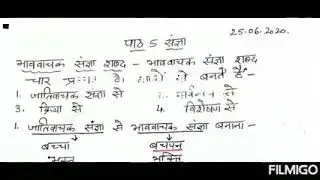 25.06.2020.
पाठ 5 संज्ञा
भाववाचक संज्ञा शब्द - भाववाचक संज्ञा शब्द
चार है, बनते हैं -
1. जातिवाचक संज्ञा से
3. क्रिया से 4. विशेषण से
1. जातिवाचक संज्ञा से भाववाचक संज्ञा बनाना-
बच्चा बचपन
भक्त भक्ति
FILMIGO